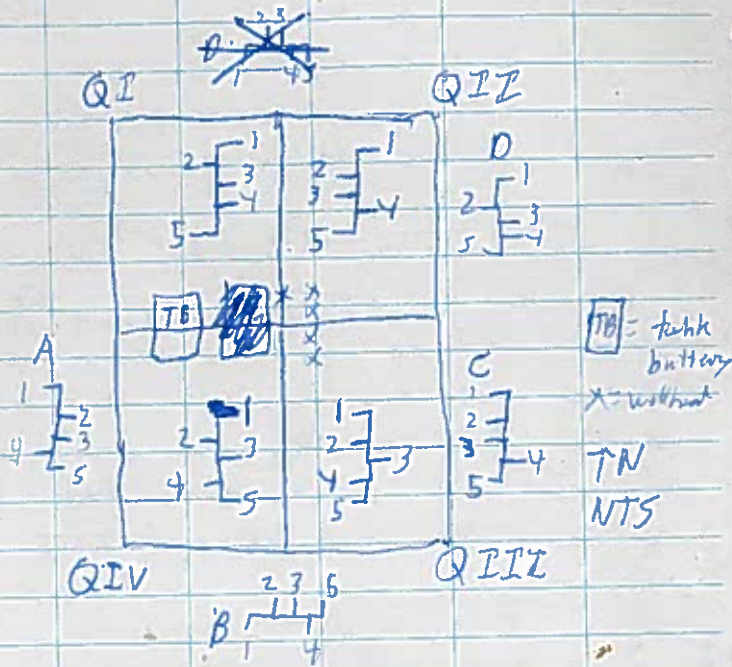 2 3
D
1 4 5
QI QII
1
2
3
4
5
1
2
3
4
5
D
1
2
3
4
5
TB
X X
X
X
X
TB = tank
battery
X = wellhead
A
1
2
3
4
5
1
2
3
4
5
1
2
3
4
5
C
1
2
3
4
5
TN
NTS
QIV QIII
2 3 5
B
1 4